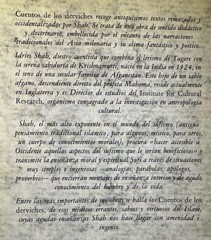 Cuentos de los derviches recoge antiquísimos textos rematados y
occidentalizados por Shah. Se trata de una obra de sentido didáctico
y doctrinario, embellecida por el encanto de las narraciones
tradicionales del Asia milenaria y su clima fantástico y poético.
Idries Shah, diestro cuentista que combina el lirismo de Tagore con
la serena sabiduría de Krishnamurti, nació en la India en 1924, en
el seno de una secular familia de Afganistán. Este hijo de un sabio
afgano, descendiente directo del profeta Mahoma, reside actualmente
en Inglaterra y es Director de estudios del Institute for Cultural
Research, organismo consagrado a la investigación en antropología
cultural.
Shah, el más alto exponente en el mundo del sufismo (antiguo
pensamiento tradicional islámico, para algunos; místico, para otros,
un cuerpo de conocimientos), procura hacer accesible a
Occidente aquellos aspectos del sufismo que le serían beneficiosos y
transmite la enseñanza moral y espiritual Sufi a través de situaciones
muy simples e ingeniosas —analogías, parábolas, apólogos,
proverbios— que encierran mensajes de enseñanza interior y de agudo
conocimiento del hombre y de la vida.
Entre las más importantes de sus obras se halla Cuentos de los
derviches, de esos médicos errantes, sabios y virtuosos del Islam,
cuyas agudas enseñanzas Shah nos hace llegar con amenidad e
ingenio.